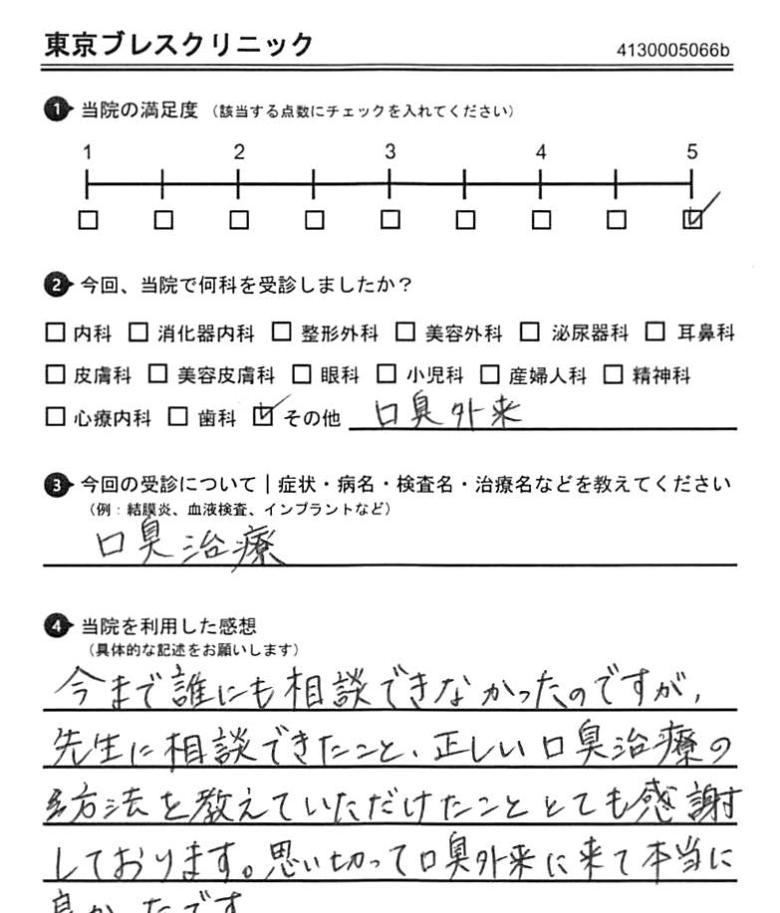 東京ブレスクリニック
4130005066b
1 当院の満足度 （該当する点数にチェックを入れてください）
1 2 3 4 5
2 今回、当院で何科を受診しましたか？
内科 消化器内科 整形外科 美容外科 泌尿器科 耳鼻科
皮膚科 美容皮膚科 眼科 小児科 産婦人科 精神科
心療内科 歯科 その他 口臭外来
3 今回の受診について｜症状・病名・検査名・治療名などを教えてください
（例：結膜炎、血液検査、インプラントなど）
口臭治療
4 当院を利用した感想
（具体的な記述をお願いします）
今まで誰にも相談できなかったのですが，
先生に相談できたこと、正しい口臭治療の
方法を教えていただけたこととても感謝
しております。思い切って口臭外来に来て本当に
良かったです